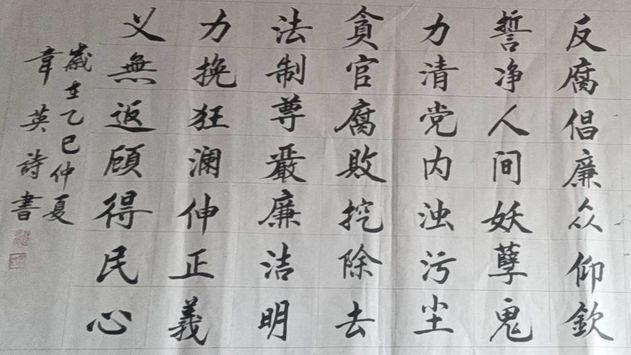 反腐倡廉众仰欽
誓净人间妖孽鬼
力清党内浊污尘
貪官腐败挖除去
法制尊嚴廉洁明
力挽狂澜伸正義
义無返顾得民心
歲在乙巳仲夏
韋英詩書